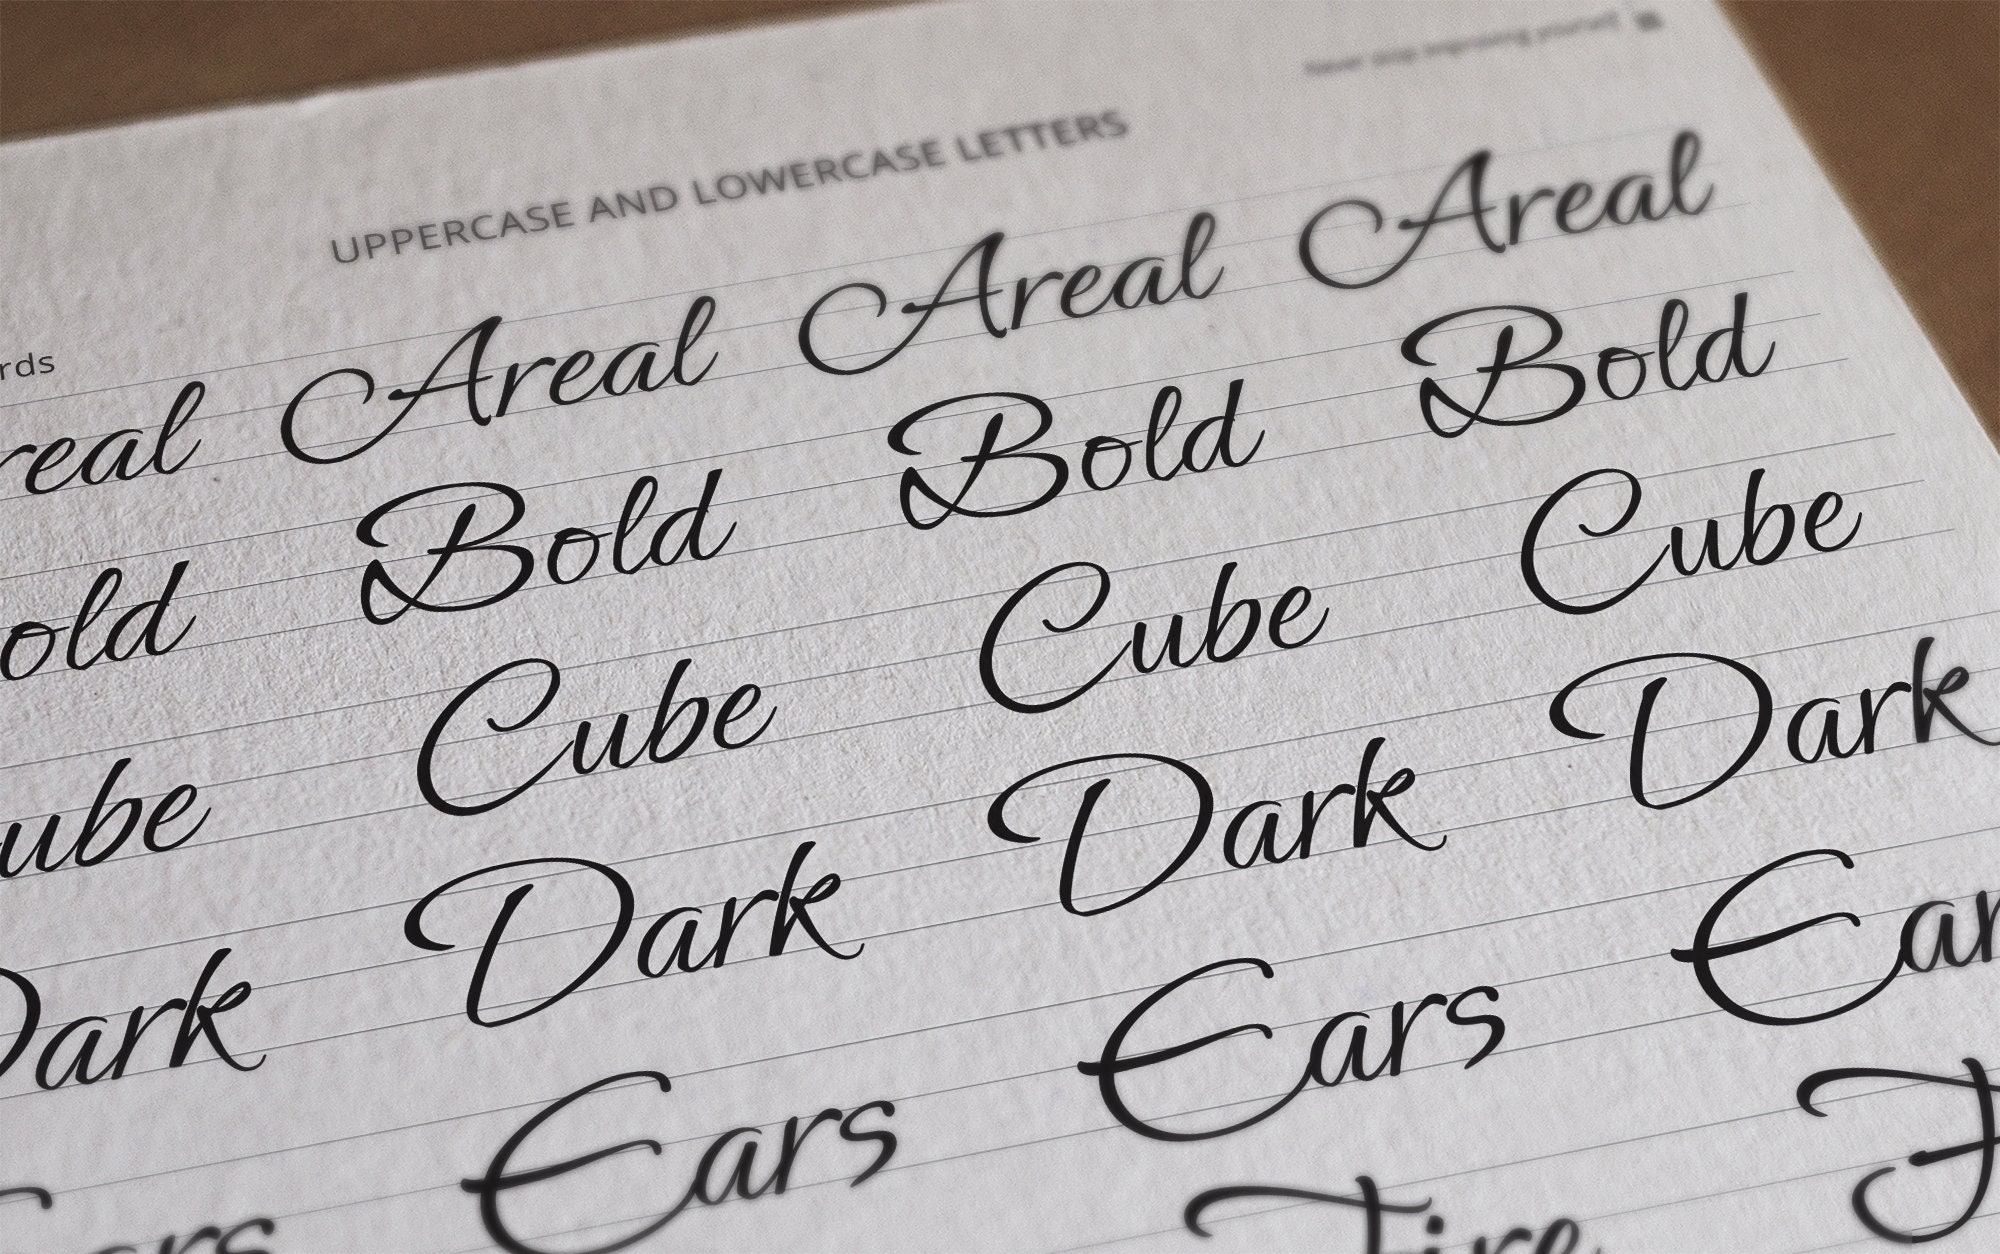 Never stop improving yourself
UPPERCASE AND LOWERCASE LETTERS
rds
real Areal Areal Areal
old Bold Bold Bold
ube Cube Cube Cube
Dark Dark Dark Dark
ars Ears Ears Ear
Fire F